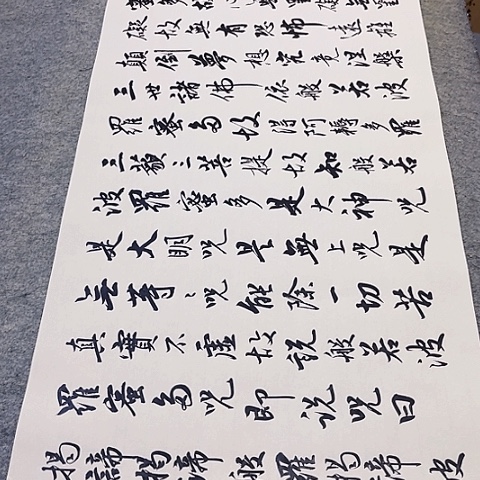 礙故無有恐怖遠離
顛倒夢想究竟涅槃
三世諸佛依般若波
羅蜜多故得阿耨多羅
三藐三菩提故知般若
波羅蜜多是大神咒
是大明咒是無上咒是
無等〻咒能除一切苦
真實不虛故說般若波
羅蜜多咒即說咒曰
揭諦揭諦般羅揭諦